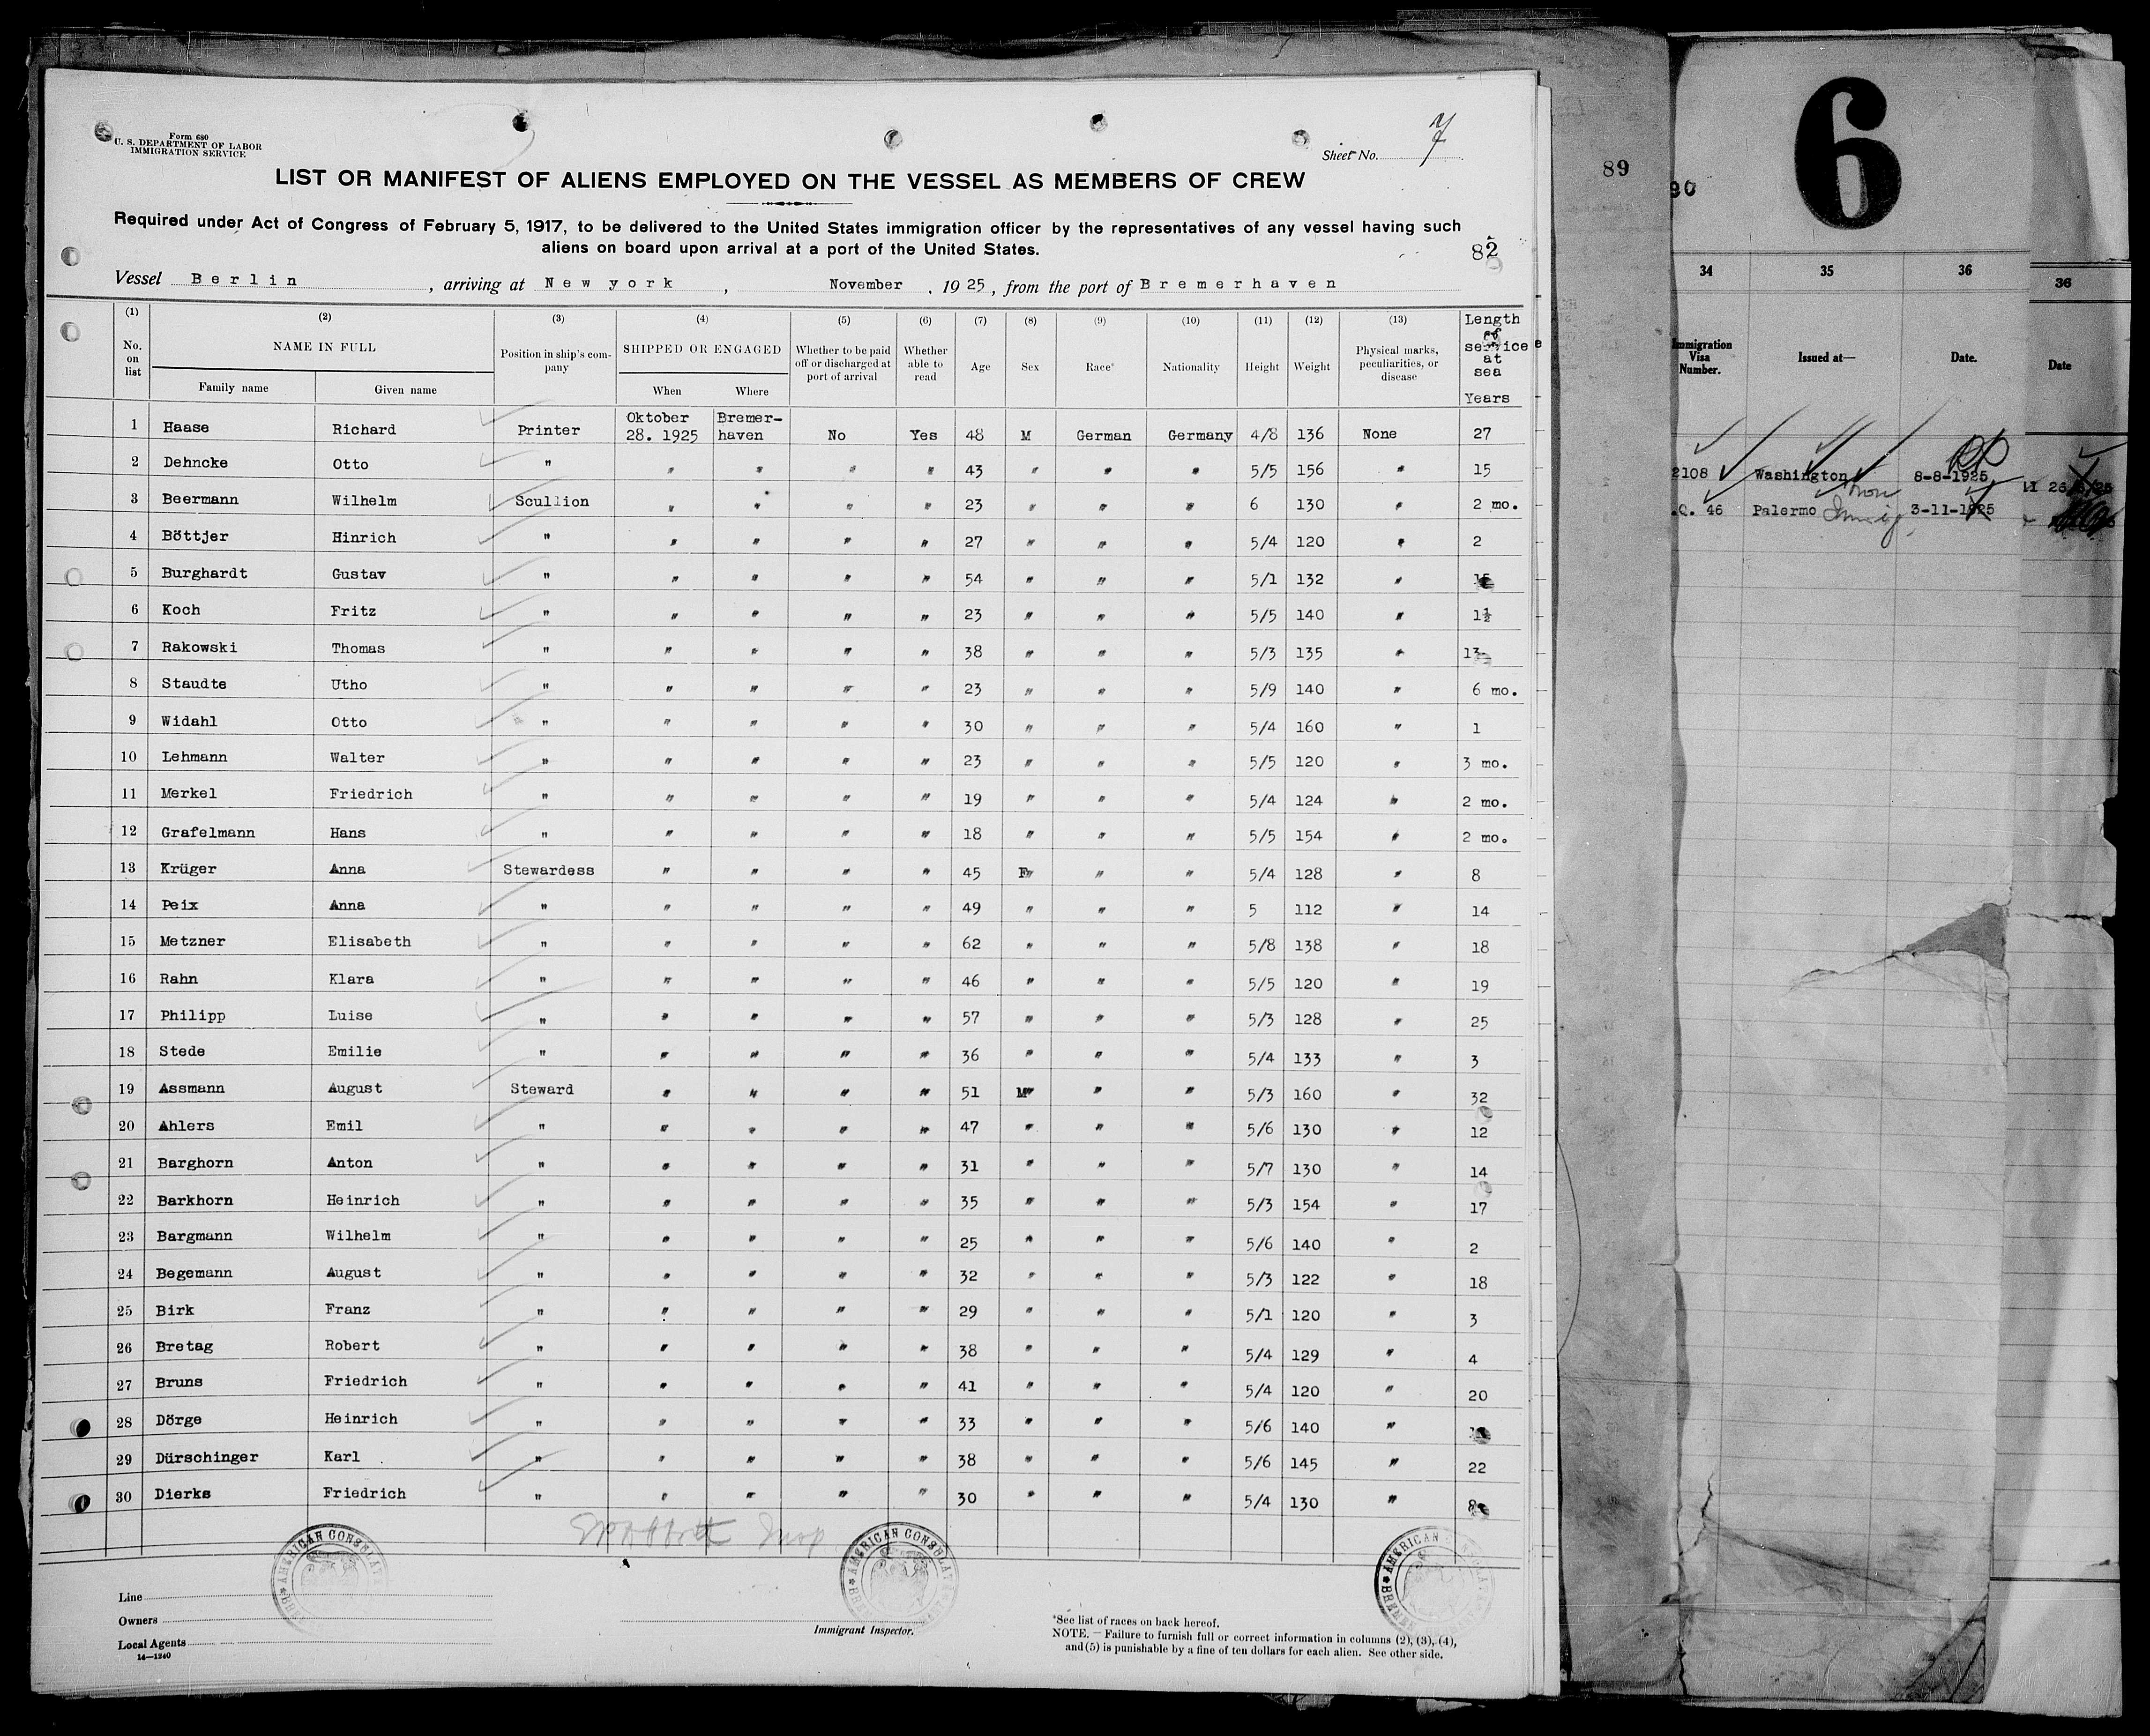 Form 680
U. S. DEPARTMENT OF LABOR
IMMIGRATION SERVICE
Sheet No. 7
LIST OR MANIFEST OF ALIENS EMPLOYED ON THE VESSEL AS MEMBERS OF CREW
Required under Act of Congress of February 5, 1917, to be delivered to the United States immigration officer by the representatives of any vessel having such
aliens on board upon arrival at a port of the United States.
82
Vessel Berlin, arriving at New york, November, 1925, from the port of Bremerhaven
(1) (2) (3) (4) (5) (6) (7) (8) (9) (10) (11) (12) (13) Length of service at sea Years
No. on list NAME IN FULL Position in ship's company SHIPPED OR ENGAGED Whether to be paid off or discharged at port of arrival Whether able to read Age Sex Race* Nationality Height Weight Physical marks, peculiarities, or disease
Family name Given name When Where
1 Haase Richard Printer Oktober 28. 1925 Bremer-haven No Yes 48 M German Germany 4/8 136 None 27
2 Dehncke Otto " " " " " 43 " " " 5/5 156 " 15
3 Beermann Wilhelm Scullion " " " " 23 " " " 6 130 " 2 mo.
4 Böttjer Hinrich " " " " " 27 " " " 5/4 120 " 2
5 Burghardt Gustav " " " " " 54 " " " 5/1 132 "
6 Koch Fritz " " " " " 23 " " " 5/5 140 " 1½
7 Rakowski Thomas " " " " " 38 " " " 5/3 135 " 13
8 Staudte Utho " " " " " 23 " " " 5/9 140 " 6 mo.
9 Widahl Otto " " " " " 30 " " " 5/4 160 " 1
10 Lehmann Walter " " " " " 23 " " " 5/5 120 " 3 mo.
11 Merkel Friedrich " " " " " 19 " " " 5/4 124 " 2 mo.
12 Grafelmann Hans " " " " " 18 " " " 5/5 154 " 2 mo.
13 Krüger Anna Stewardess " " " " 45 F " " 5/4 128 " 8
14 Peix Anna " " " " " 49 " " " 5 112 " 14
15 Metzner Elisabeth " " " " " 62 " " " 5/8 138 " 18
16 Rahn Klara " " " " " 46 " " " 5/5 120 " 19
17 Philipp Luise " " " " " 57 " " " 5/3 128 " 25
18 Stede Emilie " " " " " 36 " " " 5/4 133 " 3
19 Assmann August Steward " " " " 51 M " " 5/3 160 " 32
20 Ahlers Emil " " " " " 47 " " " 5/6 130 " 12
21 Barghorn Anton " " " " " 31 " " " 5/7 130 " 14
22 Barkhorn Heinrich " " " " " 35 " " " 5/3 154 " 17
23 Bargmann Wilhelm " " " " " 25 " " " 5/6 140 " 2
24 Begemann August " " " " " 32 " " " 5/3 122 " 18
25 Birk Franz " " " " " 29 " " " 5/1 120 " 3
26 Bretag Robert " " " " " 38 " " " 5/4 129 " 4
27 Bruns Friedrich " " " " " 41 " " " 5/4 120 " 20
28 Dörge Heinrich " " " " " 33 " " " 5/6 140 "
29 Dürschinger Karl " " " " " 38 " " " 5/6 145 " 22
30 Dierks Friedrich " " " " " 30 " " " 5/4 130 " 8
AMERICAN CONSULATE
AMERICAN CONSULATE
AMERICAN CONSULATE
Line
Owners
Local Agents
14—1240
Immigrant Inspector.
*See list of races on back hereof.
NOTE. — Failure to furnish full or correct information in columns (2), (3), (4),
and (5) is punishable by a fine of ten dollars for each alien. See other side.
89
90
6
34 35 36
36
Immigration Visa Number. Issued at— Date.
Date
2108 Washington 8-8-1925
46 Palermo 3-11-1925